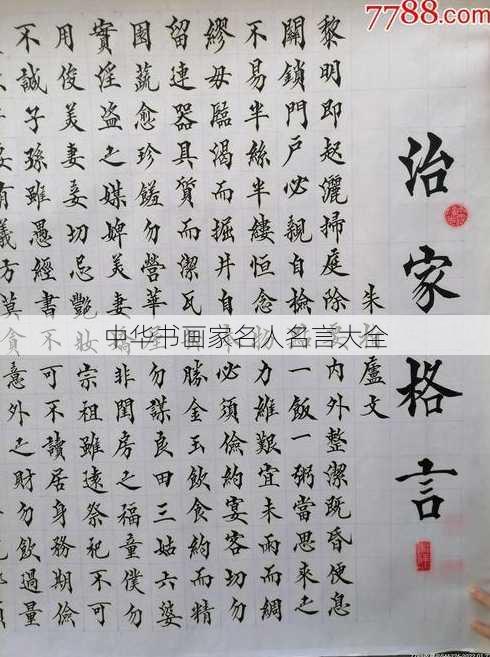 7788.com
治家格言
朱柏廬文
黎明即起灑掃庭除要內外整潔既昏便息
關鎖門戶必親自檢點一飯一粥當思來之
不易半絲半縷恒念物力維艱宜未雨而綢
繆毋臨渴而掘井自奉必須儉約宴客切勿
留連器具質而潔瓦缶勝金玉飲食約而精
園蔬愈珍饈勿營華屋勿謀良田三姑六婆
實淫盜之媒婢美妻嬌非閨房之福童僕勿
用俊美妻妾切忌艷妝宗祖雖遠祭祀不可
不誠子孫雖愚經書不可不讀居身務期儉
有義方莫貪意外之財勿飲過量
中华书画家名人名言大全